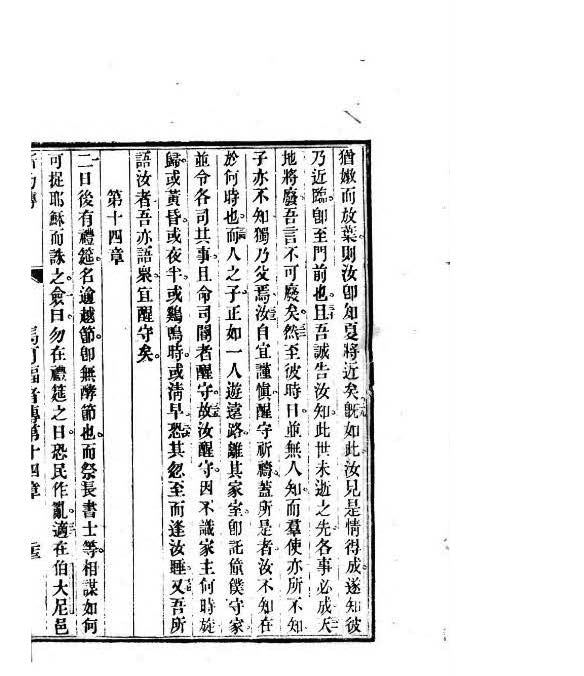 猶嫩而放葉則汝即知夏將近矣旣如此汝見是情得成遂知彼
乃近臨即至門前也且吾誠告汝知此世未逝之先各事必成天
地將廢吾言不可廢矣然至彼時日並無人知而羣使亦所不知
子亦不知獨乃父焉汝自宜謹愼醒守祈禱蓋所是者汝不知在
於何時也而人之子正如一人遊遠路離其家室即託僮僕守家
並令各司其事且命司閽者醒守故汝醒守因不識家主何時旋
歸或黃昏或夜半或鷄鳴時或清早恐其忽至而逢汝睡又吾所
語汝者吾亦語衆宜醒守矣
第十四章
二日後有禮筵名逾越節即無酵節也而祭長書士等相謀如何
可捉耶穌而誅之僉曰勿在禮筵之日恐民作亂適在伯大尼邑
馬可福音傳第十四章